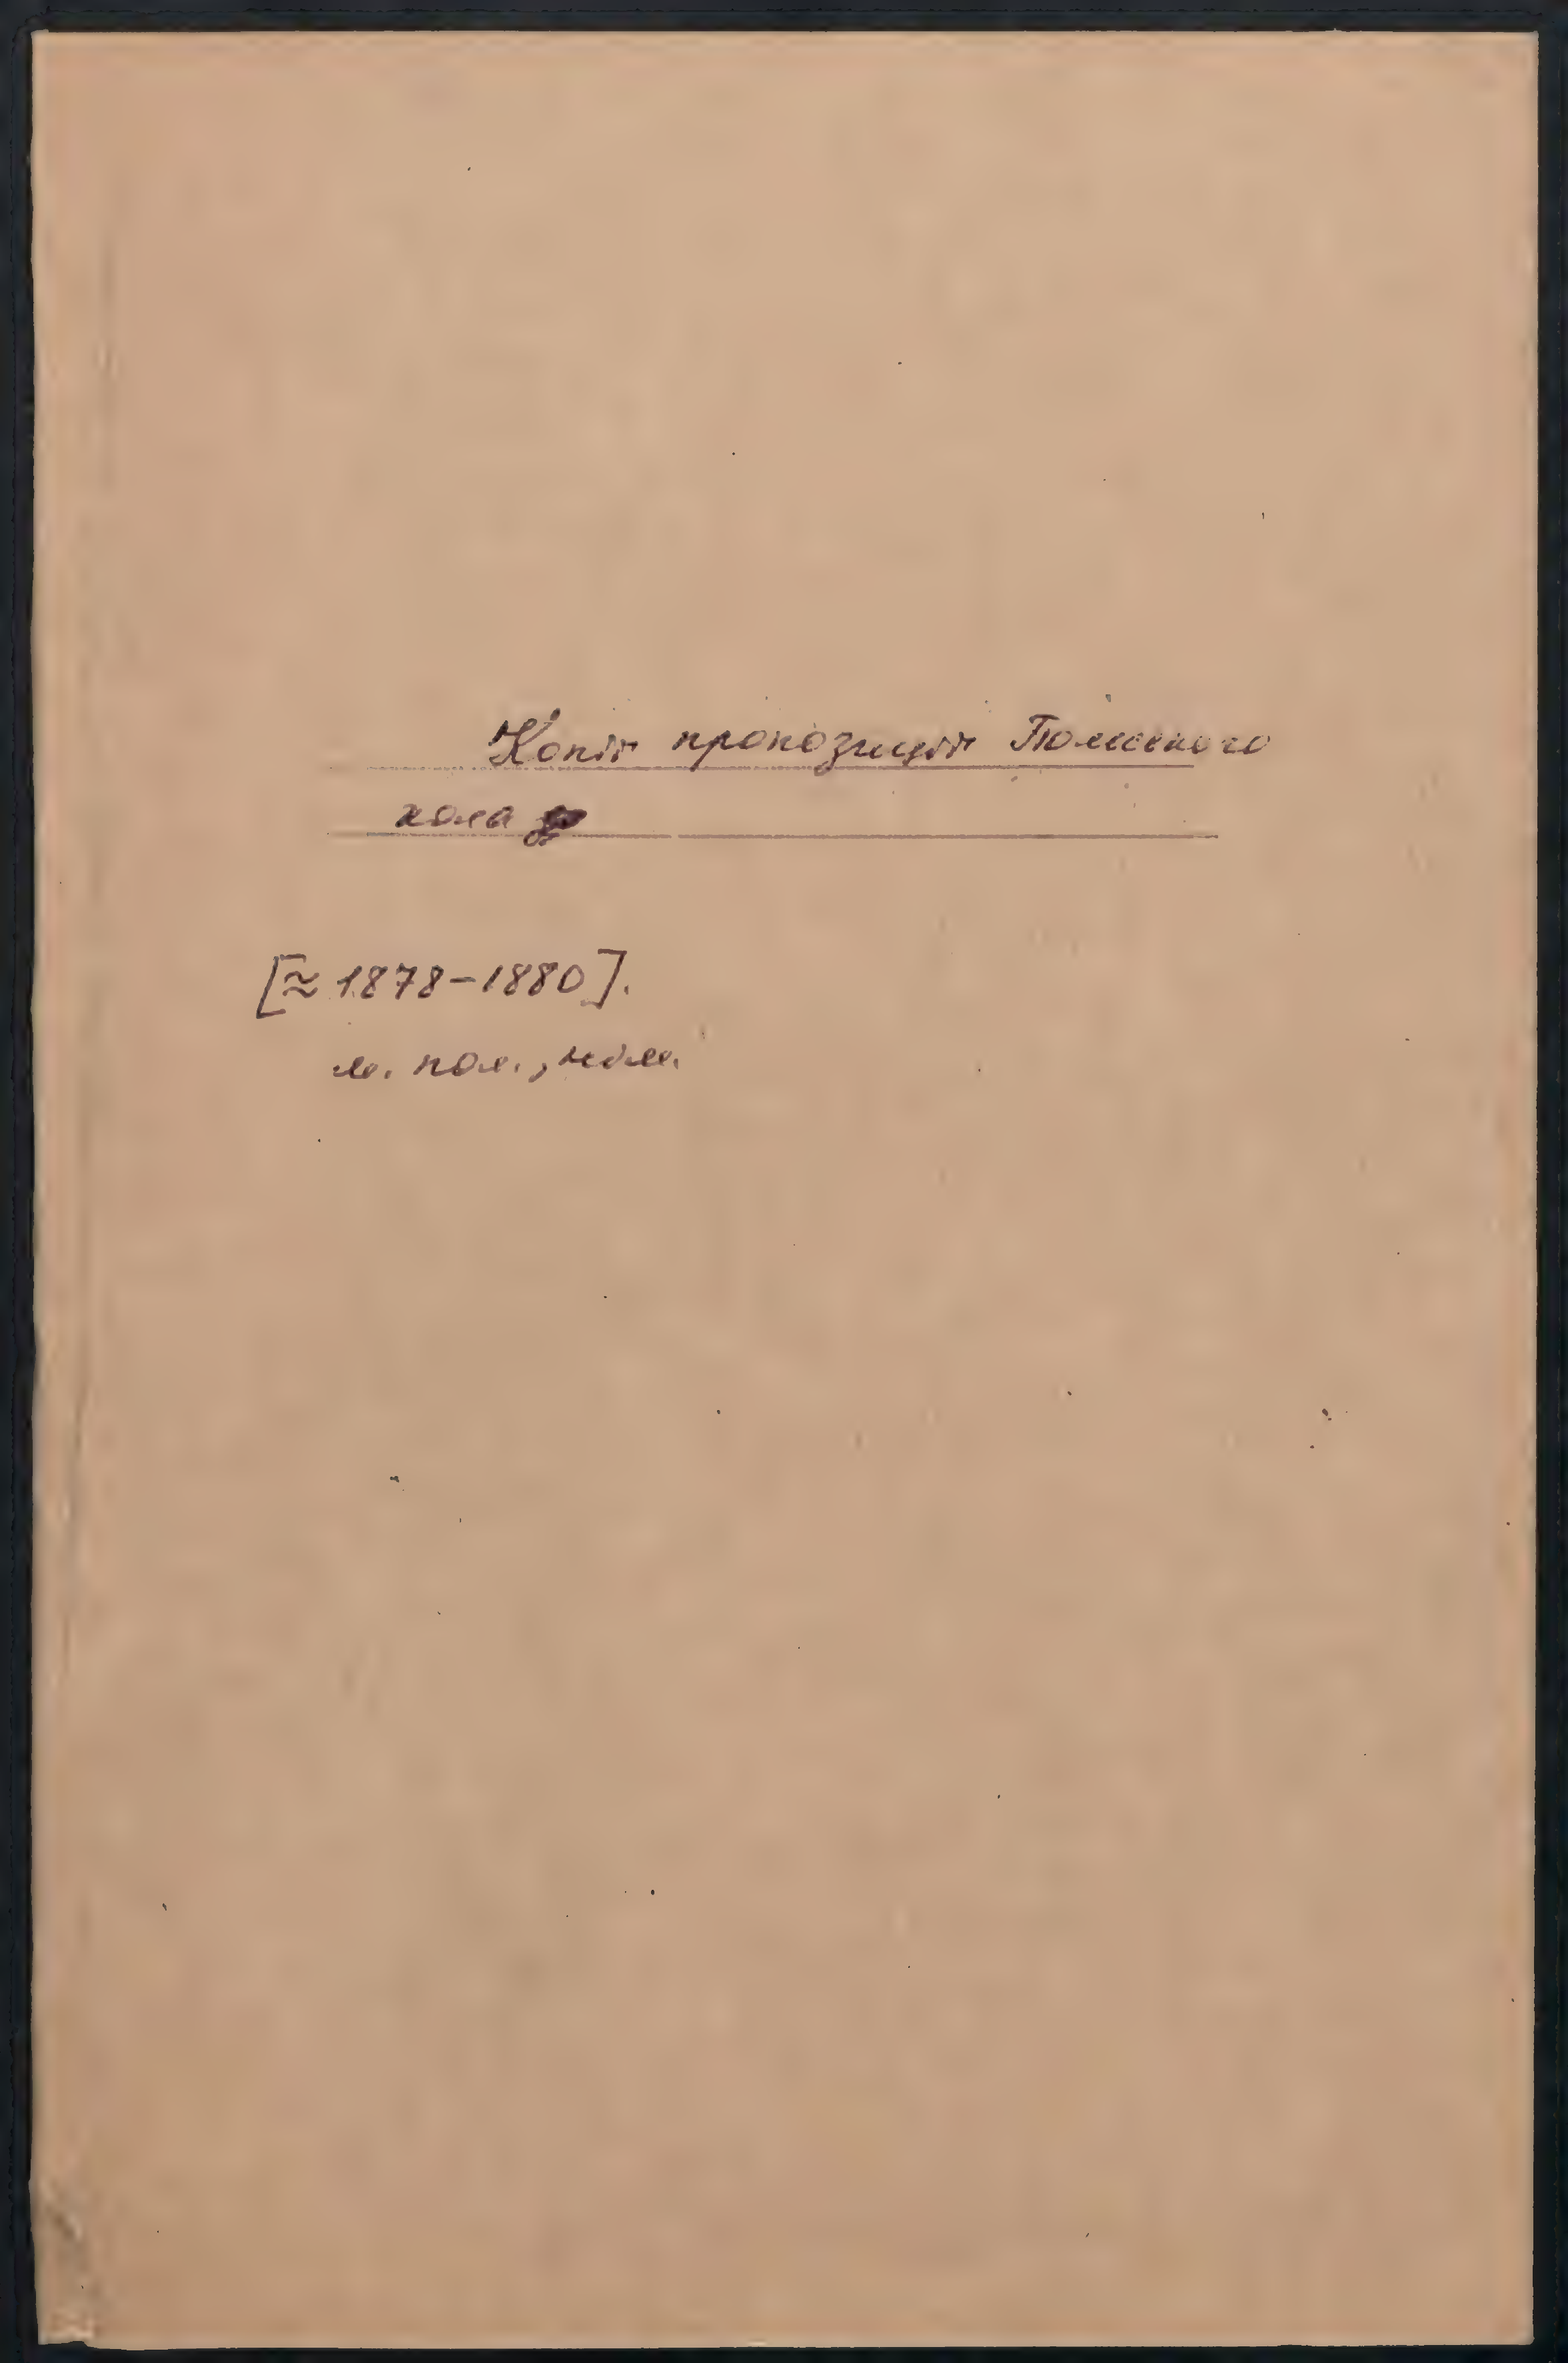 Копії пропозицій Польського
кола
[≈ 1878-1880].
м. пол., нім.